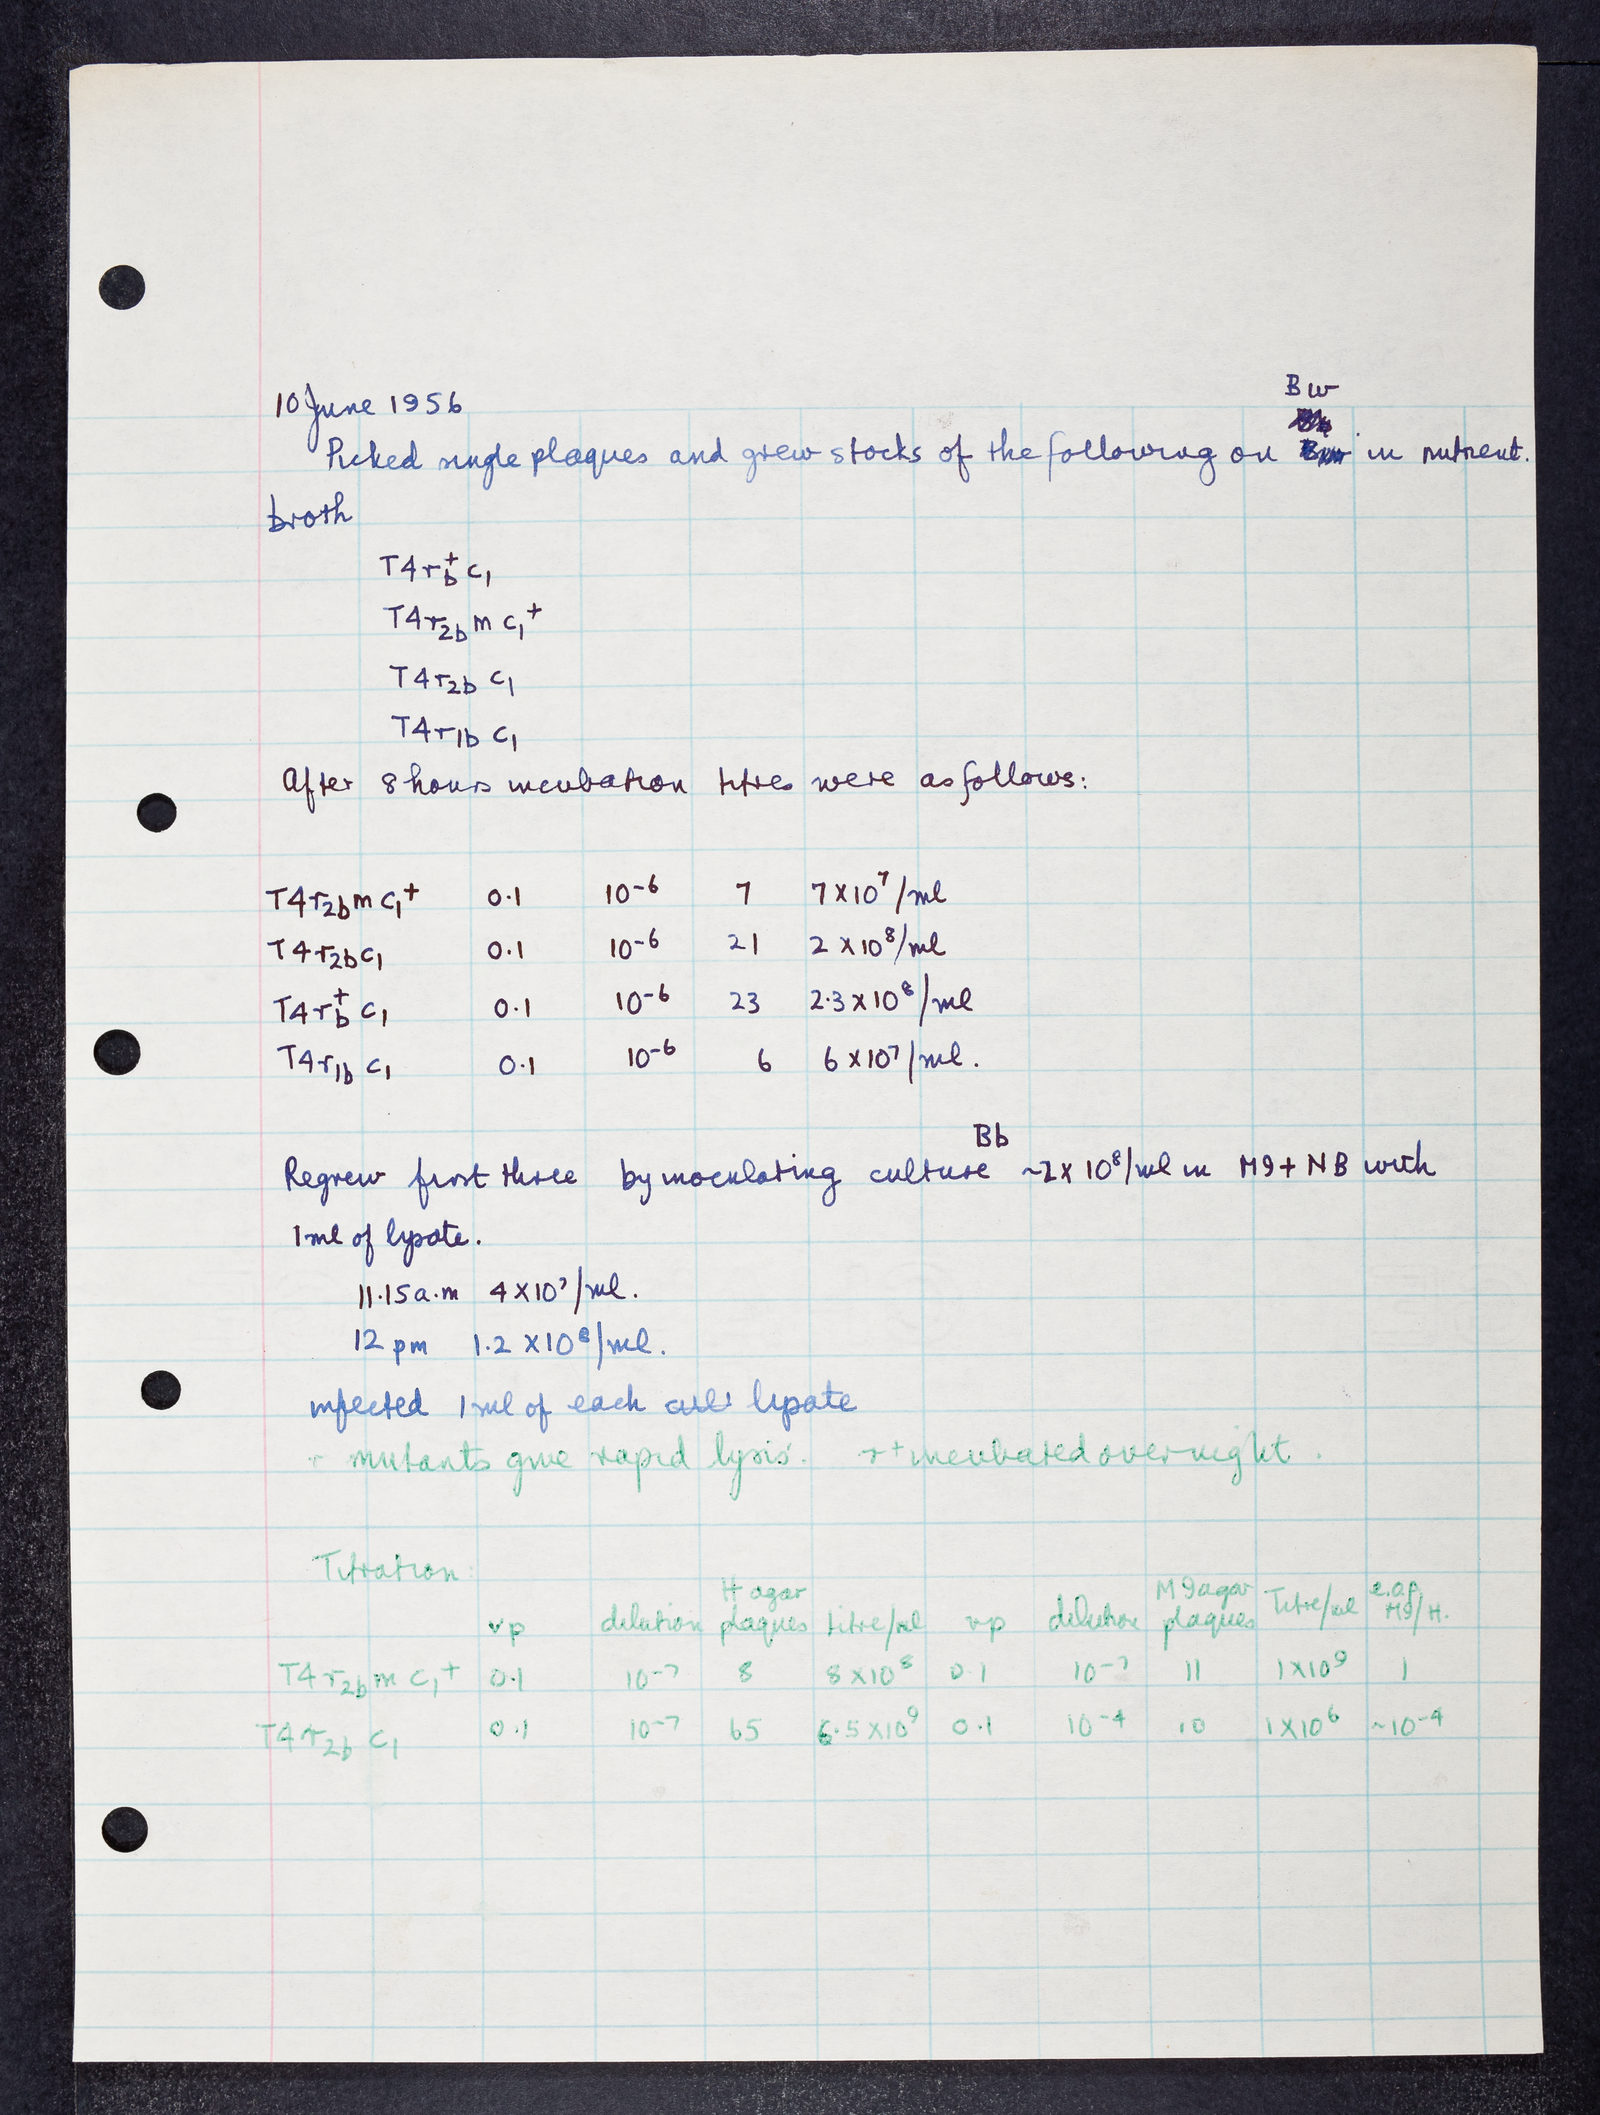 10 June 1956
Bw
Picked single plaques and grew stocks of the following on in nutrient.
broth
T4r_b^+ c_1
T4r_2b m c_1^+
T4r_2b c_1
T4r_1b c_1
After 8 hours incubation titres were as follows:
T4r_2b m c_1^+ 0.1 10^-6 7 7 x 10^7/ml
T4r_2b c_1 0.1 10^-6 21 2 x 10^8/ml
T4r_b^+ c_1 0.1 10^-6 23 2.3 x 10^8/ml
T4r_1b c_1 0.1 10^-6 6 6 x 10^7/ml.
Bb
Regrew first three by inoculating culture ~2 x 10^8/ml in M9 + NB with
1 ml of lysate.
11.15 a.m 4 x 10^7/ml.
12 pm 1.2 x 10^8/ml.
infected 1 ml of each lysate
r mutants give rapid lysis. r^+ incubated overnight.
Titration:
vp dilution H agar plaques titre/ml vp dilution M9 agar plaques Titre/ml e.o.p. M9/H.
T4r_2b m c_1^+ 0.1 10^-7 8 8 x 10^8 0.1 10^-7 11 1 x 10^9 1
T4r_2b c_1 0.1 10^-7 65 6.5 x 10^9 0.1 10^-4 10 1 x 10^6 ~10^-4